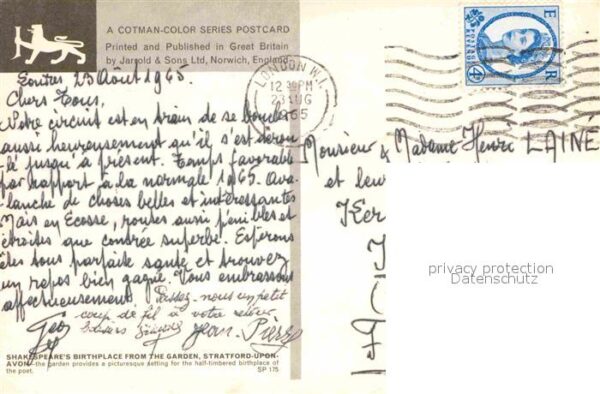 A COTMAN-COLOR SERIES POSTCARD
Printed and Published in Great Britain
by Jarrold & Sons Ltd, Norwich, England
Londres 23 Août 1965.
Chers Tous,
Notre circuit est en train de se boucler
aussi heureusement qu'il s'est dérou-
lé jusqu'à présent. Temps favorable
par rapport à la normale 1965. Ava-
lanche de choses belles et intéressantes
Mais en Ecosse, routes aussi pénibles et
étroites que contrée superbe. Espérons
êtes tous parfaite santé et trouvez
un repos bien gagné. Vous embrassons
affectueusement. Passez-nous un petit
coup de fil à votre retour
Jean-Pierre
SHAKESPEARE'S BIRTHPLACE FROM THE GARDEN, STRATFORD-UPON-
AVON—the garden provides a picturesque setting for the half-timbered birthplace of
the poet.
SP 175
LONDON W.1.
12 PM
23 AUG
1965
E R
POSTAGE
4D
Monsieur & Madame Henri LAINÉ
et leur
Ker
privacy protection
Datenschutz